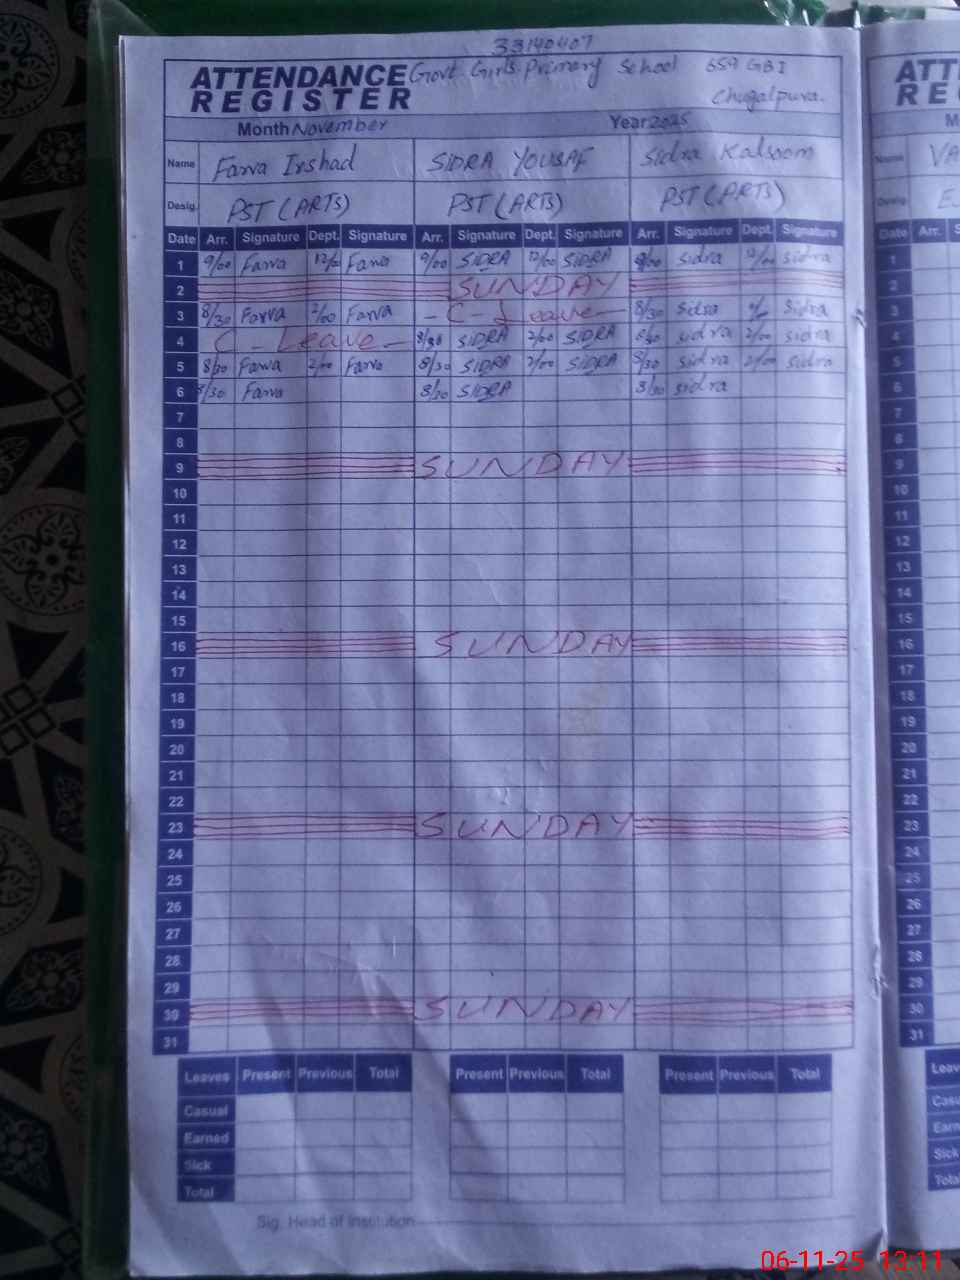 33140407
ATTENDANCE Govt. Girls Primary School 659 GBI
REGISTER Chugalpura.
Month November Year 2025
Name Farva Irshad SIDRA YOUSAF Sidra Kalsoom
Desig. PST (ARTS) PST (ARTS) PST (ARTS)
Date Arr. Signature Dept. Signature Arr. Signature Dept. Signature Arr. Signature Dept. Signature
1 9/00 Farva 12/00 Farva 9/00 SIDRA 12/00 SIDRA 9/00 sidra 12/00 sidra
2 SUNDAY
3 8/30 Farva 2/00 Farva - C - Leave - 8/30 Sidra 2/00 Sidra
4 C - Leave - 8/30 SIDRA 2/00 SIDRA 8/30 sidra 2/00 sidra
5 8/30 Farva 2/00 Farva 8/30 SIDRA 2/00 SIDRA 8/30 sidra 2/00 sidra
6 8/30 Farva 8/30 SIDRA 8/30 sidra
7
8
9 SUNDAY
10
11
12
13
14
15
16 SUNDAY
17
18
19
20
21
22
23 SUNDAY
24
25
26
27
28
29
30 SUNDAY
31
Leaves Present Previous Total Present Previous Total Present Previous Total
Casual
Earned
Sick
Total
Sig. Head of Institution
ATT
RE
M
Name VA
Desig. E
Date Arr. S
1
2
3
4
5
6
7
8
9
10
11
12
13
14
15
16
17
18
19
20
21
22
23
24
25
26
27
28
29
30
31
Leav
Casu
Earn
Sick
Total
06-11-25 13:11